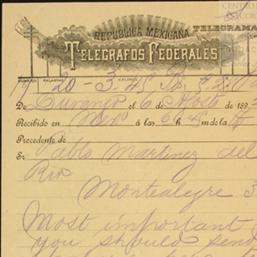 CENTRO
TELEGRAMA
REPUBLICA MEXICANA
TELEGRAFOS FEDERALES
19 20-3.45
De Durango el 6 de Agosto de 189
Recibido en Mex á las 6 h. m de la
Procedente de
Sr Pablo Martinez del
Rio
Montealegre 3
Most important
you should send